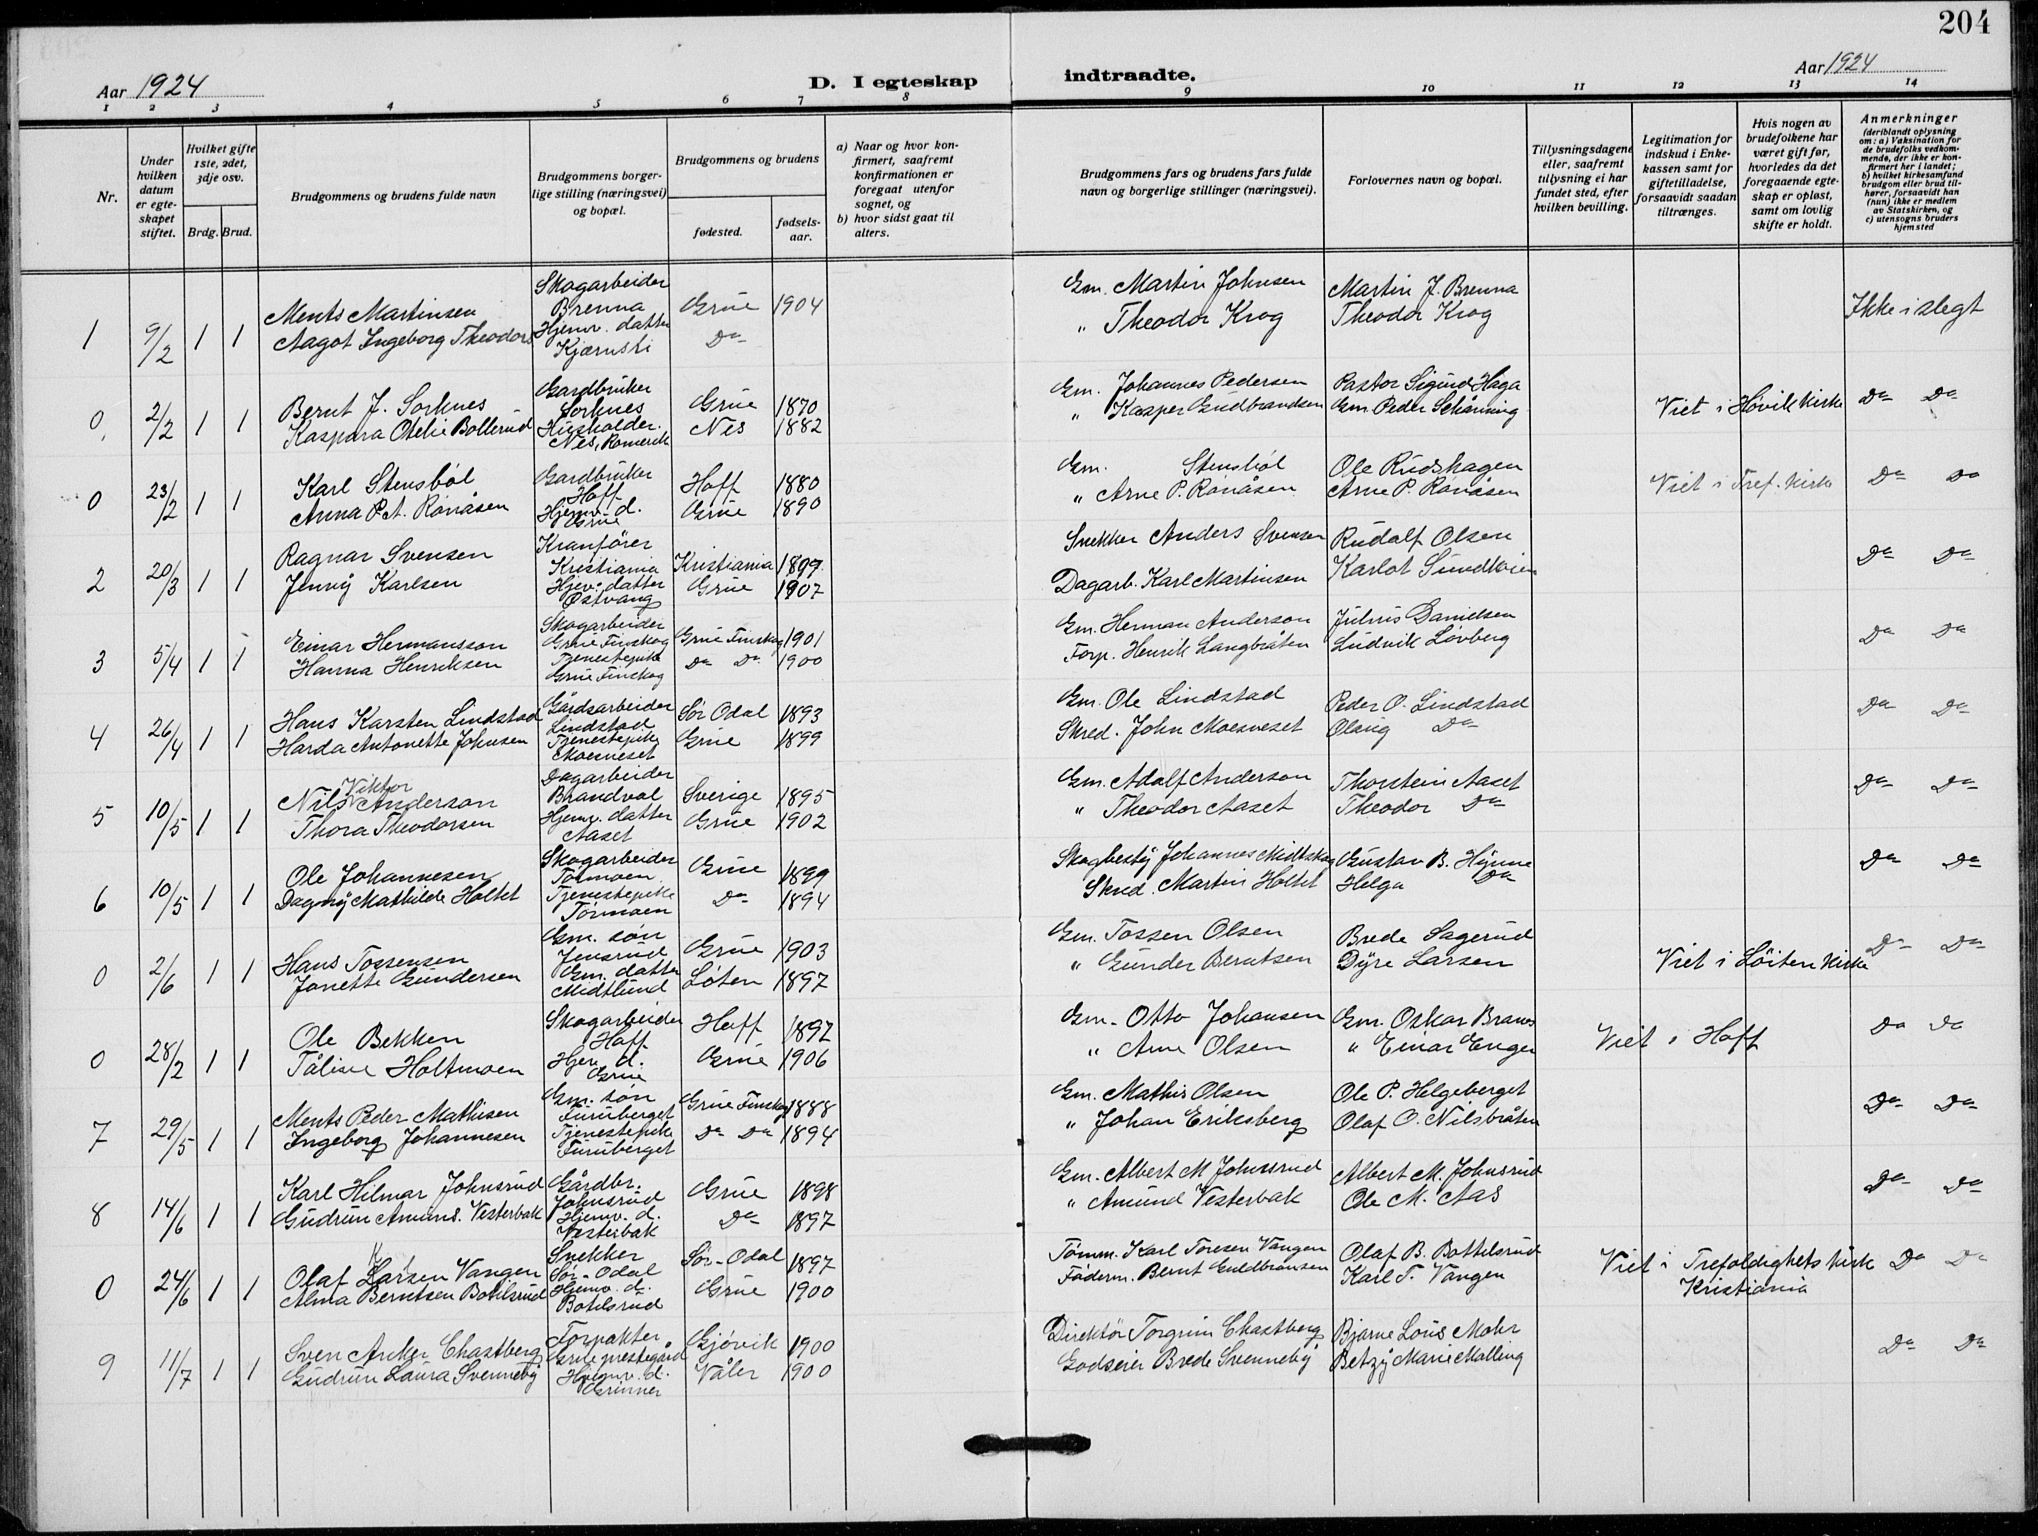 204
Aar 1924
D. I egteskap
indtraadte.
Aar 1924
1 2 3 4 5 6 7 8 9 10 11 12 13 14
Nr.
Under hvilken datum er egteskapet stiftet.
Hvilket gifte 1ste, 2det, 3dje osv.
Brdg. Brud.
Brudgommens og brudens fulde navn
Brudgommens borgerlige stilling (næringsvei) og bopæl.
Brudgommens og brudens
fødested.
fødselsaar.
a) Naar og hvor konfirmert, saafremt konfirmationen er foregaat utenfor sognet, og
b) hvor sidst gaat til alters.
Brudgommens fars og brudens fars fulde navn og borgerlige stillinger (næringsvei).
Forlovernes navn og bopæl.
Tillysningsdagene eller, saafremt tillysning ei har fundet sted, efter hvilken bevilling.
Legitimation for indskud i Enkekassen samt for giftetilladelse, forsaavidt saadan tiltrænges.
Hvis nogen av brudefolkene har været gift før, hvorledes da det foregaaende egteskap er opløst, samt om lovlig skifte er holdt.
Anmerkninger
(deriblandt oplysning om: a) Vaksination for de brudefolks vedkommende, der ikke er konfirmert her i landet; b) hvilket kirkesamfund brudgom eller brud tilhører, forsaavidt han (hun) ikke er medlem av Statskirken, og c) utensogns bruders hjemsted
1 9/2 1 1 Ments Martinsen Skogarbeider Brenna Grue 1904 Gm. Martin Johnsen Martin J. Brenna Ikke i slegt
Aagot Ingeborg Theodors Hjemv. datter Kjærnsli Do " Theodor Krog Theodor Krog
0 2/2 1 1 Bernt J. Sorknes Gardbruker Sorknes Grue 1870 Gm. Johannes Pedersen Pastor Sigurd Haga Viet i Høvik kirke Do Do
Kaspara Otelie Bollerud Husholder. Nes, Romerik Nes 1882 " Kasper Gudbrandsen Gm. Peder Schanning
0 23/2 1 1 Karl Stensbøl Gardbruker Hoff Hoff 1880 Gm. Stensbøl Ole Rudshagen Viet i Tref. kirke Do Do
Anna P.A. Rønåsen Hjemv. d. Grue Grue 1890 " Arne P. Rønåsen Arne P. Rønåsen
2 20/3 1 1 Ragnar Svensen Kranfører Kristiania Kristiania 1899 Snekker Anders Svensen Rudolf Olsen Do Do
Jenny Karlsen Hjv. datter Østvang Grue 1907 Dagarb. Karl Martinsen Karlot Sundveien
3 5/4 1 1 Einar Hermansson Skogarbeider Grue Finskog Grue Finskog 1901 Gm. Herman Anderson Julius Danielsen Do Do
Hanna Henriksen Tjenestepike Grue Finskog Do Do 1900 Forp. Henrik Langbråten Ludvik Løvberg
4 26/4 1 1 Hans Karsten Lindstad Gårdsarbeider Lindstad Sør Odal 1893 Gm. Ole Lindstad Peder O. Lindstad Do Do
Harda Antonette Johnsen Tjenestepike Moesneset Grue 1899 Skred. John Moesneset Olaug Do
5 10/5 1 1 Nils Viktor Anderson Dagarbeider Brandval Sverige 1895 Gm. Adolf Anderson Thorstein Aaset Do Do
Thora Theodorsen Hjemv. datter Aaset Grue 1902 " Theodor Aaset Theodor Do
6 10/5 1 1 Ole Johannesen Skogarbeider Tormoen Grue 1899 Skogbesty Johannes Midtskog Gustav B. Hynne Do Do
Dagny Mathilde Holtet Tjenestepike Tørmoen Do 1894 Skred. Martin Holtet Helga Do
0 2/6 1 1 Hans Tossensen Gm. søn Jensrud Grue 1903 Gm. Tossen Olsen Brede Sagerud Viet i Löiten kirke Do Do
Janette Gundersen Gm. datter Midtlund Løten 1897 " Gunder Berntsen Dyre Larsen
0 28/2 1 1 Ole Bekken Skogarbeider Hoff Hoff 1897 Gm. Otto Johansen Gm. Oskar Branes Viet i Hoff Do Do
Tåline Holtmoen Hjv. d. Grue Grue 1906 " Arne Olsen " Einar Enger
7 29/5 1 1 Ments Peder Mathisen Gm. søn Furuberget Grue Finskog 1888 Gm. Mathis Olsen Ole P. Helgeberget Do Do
Ingeborg Johannesen Tjenestepik Furuberget Do Do 1894 " Johan Eriksberg Olaf O. Nilsbråten
8 14/6 1 1 Karl Hilmar Johnsrud Gårdbr. Johnsrud Grue 1898 Gm. Albert M Johnsrud Albert M. Johnsrud Do Do
Gudrun Amuns. Vesterbak Hjemv. d. Vesterbak Do 1897 " Amund Vesterbak Ole M. Aas
0 24/6 1 1 Olaf Larsen Vangen Snekker Sør-Odal Sør-Odal 1897 Tømm. Karl Toresen Vangen Olaf B. Bottilsrud Viet i Trefoldighets kirk Kristiania Do Do
Alma Berntsen Botilsrud Hjemv. d. Botilsrud Grue 1900 Föderm. Bernt Guldbransen Karl T. Vangen
9 11/7 1 1 Sven Anker Chastberg Forpakter Grue prestegård Gjøvik 1900 Direktör Torgrim Chastberg Bjarne Louis Mohr Do Do
Gudrun Laura Svenneby Hjemv. d. Grinner Våler 1900 Godseier Brede Svenneby Betzy Marie Malling